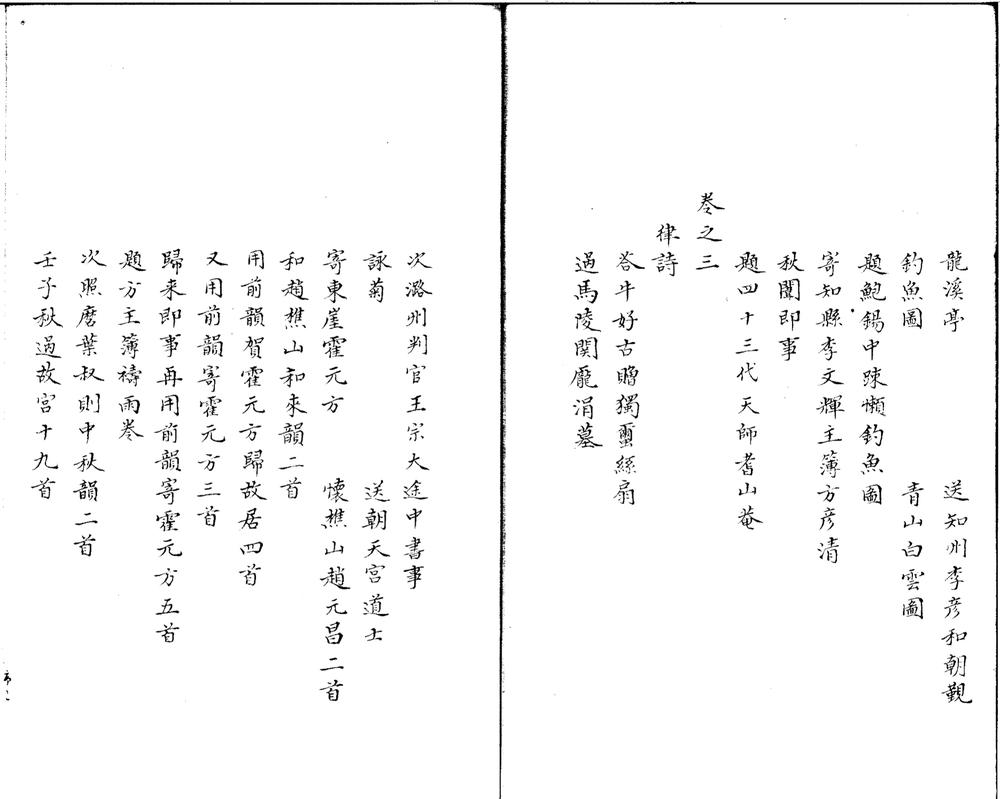 龍溪亭　送知州李彦和朝覲
釣魚圖　青山白雲圖
題鮑錫中踈懶釣魚圖
寄知縣李文輝主簿方彦清
秋闈即事
題四十三代天師耆山菴
卷之三
律詩
答牛好古贈獨蠒絲扇
過馬陵関龐涓墓
次潞州判官王宗大途中書事
詠菊　送朝天宮道士
寄東崖霍元方　懷樵山趙元昌二首
和趙樵山和來韻二首
用前韻賀霍元方歸故居四首
又用前韻寄霍元方三首
歸來即事再用前韻寄霍元方五首
題方主簿禱雨卷
次照磨葉叔則中秋韻二首
壬子秋過故宮十九首